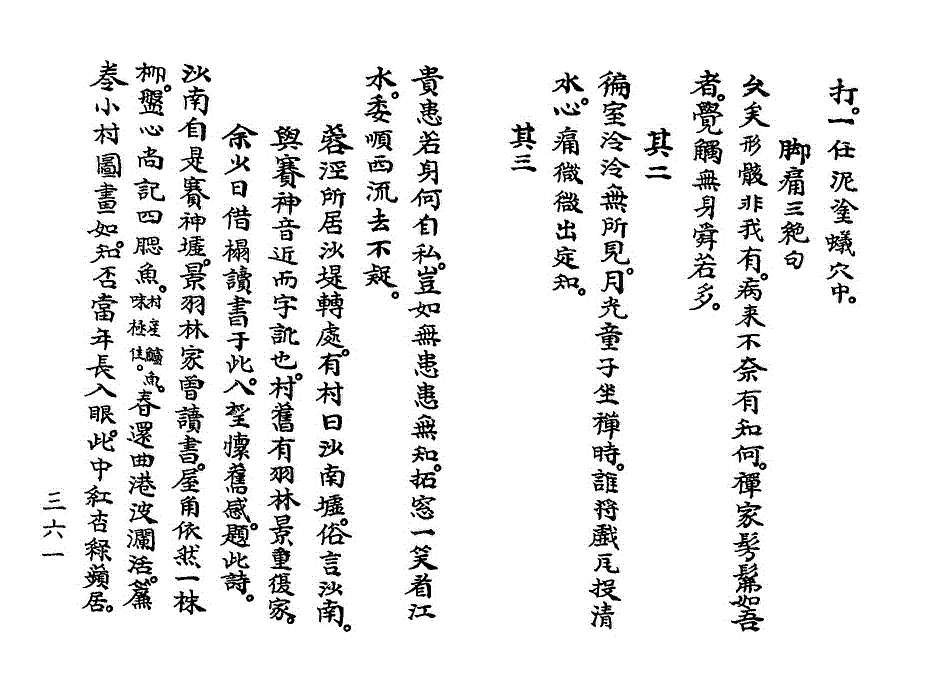 打。一任泥塗蟻穴中。
脚痛三絶句
久矣形骸非我有。病来不奈有知何。禪家髣髴如吾
者。覺觸無身舜若多。
其二
徧室泠泠無所見。月光童子坐禪時。誰将戲瓦投清
水。心痛微微出定知。
其三
貴患若身何自私。豈如無患患無知。拓窓一笑看江
水。委順西流去不疑。
蓉涇所居沙堤轉處。有村曰沙南墟。俗言沙南。
與賽神音近而字訛也。村舊有羽林景重復家。
余少日借榻讀書于此。入望懷舊感。題此詩。
沙南自是賽神墟。景羽林家曾讀書。屋角依然一株
柳。盤心尚記四腮魚。村産鱸魚。味極佳。春還曲港波瀾活。簾
捲小村圖畫如。知否當年長入眼。此中紅杏緑蘋居。
三六一